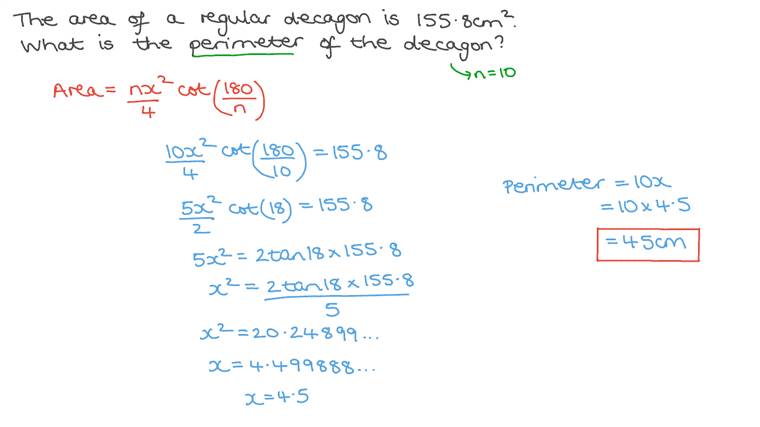 The area of a regular decagon is 155·8cm².
What is the perimeter of the decagon?
→n=10
Area = nx²/4 cot(180/n)
10x²/4 cot(180/10) = 155·8
5x²/2 cot(18) = 155·8
5x² = 2tan18 × 155·8
x² = 2tan18 × 155·8/5
x² = 20·24899...
x = 4·499888...
x = 4·5
Perimeter = 10x
= 10 × 4·5
= 45cm